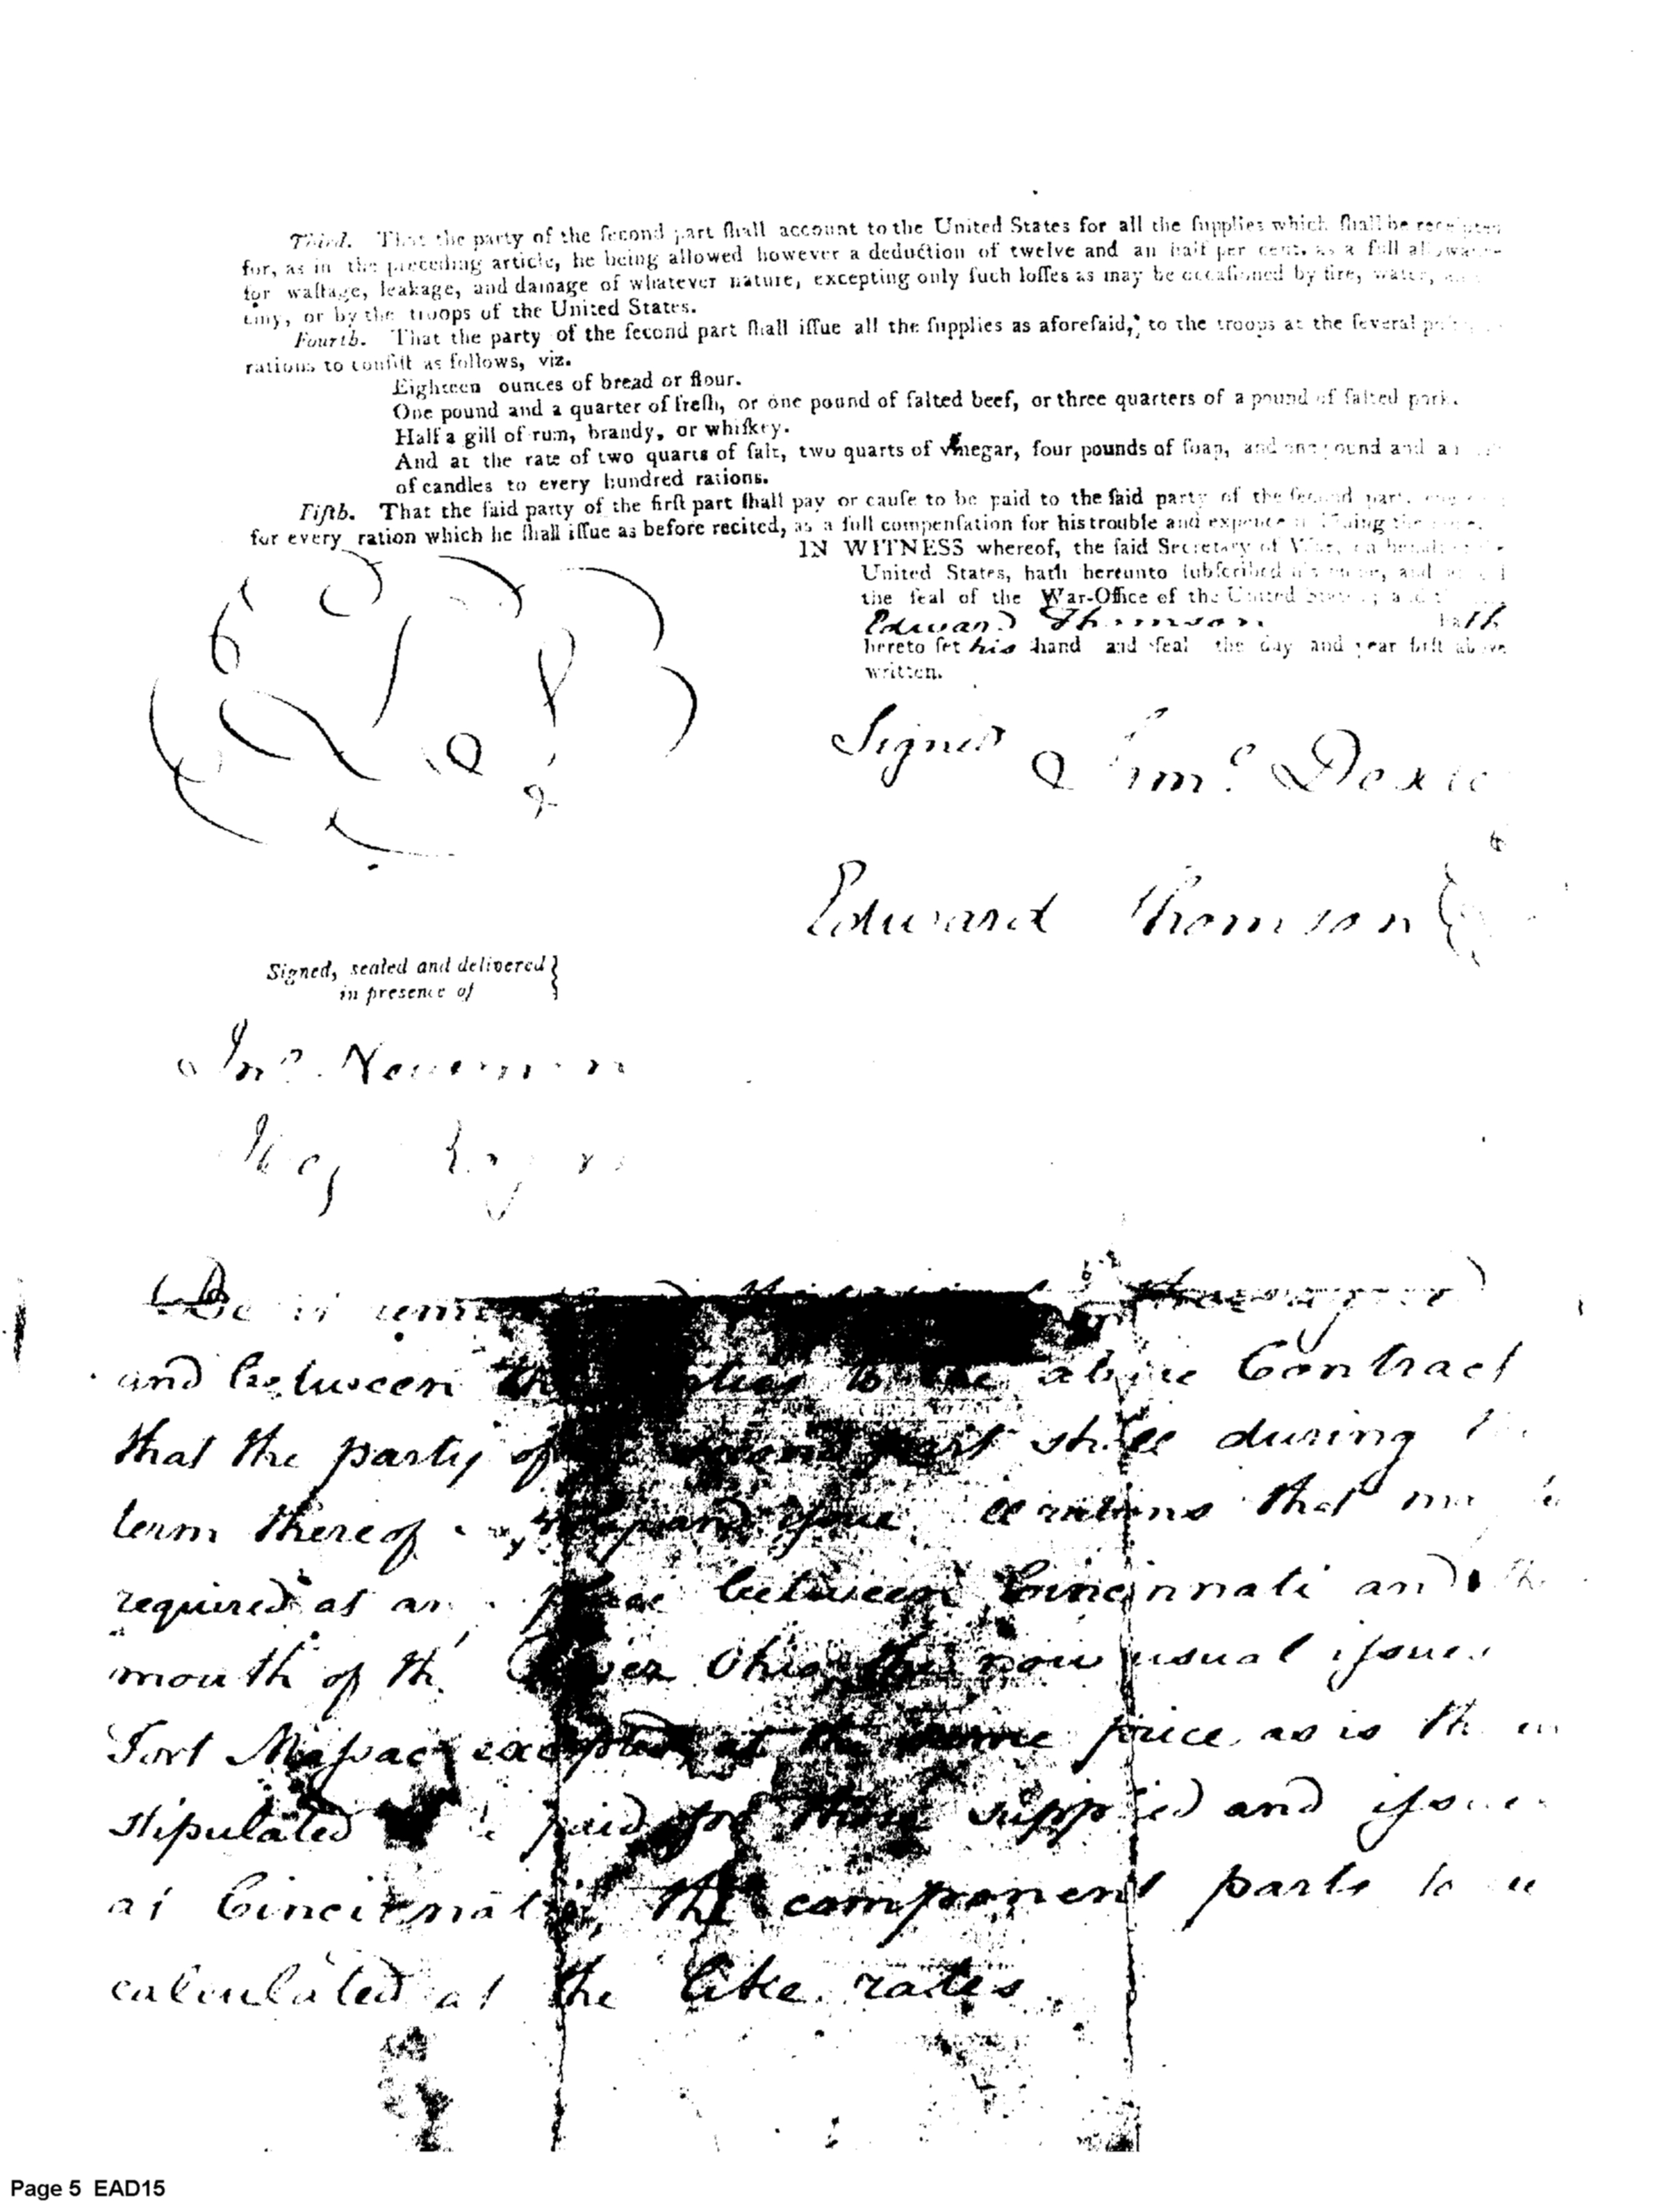 Third. That the party of the ſecond part ſhall account to the United States for all the ſupplies which ſhall be
for, as in the preceding article, he being allowed however a deduction of twelve and an half per cent. as a full
for waſtage, leakage, and damage of whatever nature, excepting only ſuch loſſes as may be occaſioned by fire, water,
or by the troops of the United States.
Fourth. That the party of the ſecond part ſhall iſſue all the ſupplies as aforeſaid, to the troops at the ſeveral
rations to conſiſt as follows, viz.
Eighteen ounces of bread or flour.
One pound and a quarter of freſh, or one pound of ſalted beef, or three quarters of a pound of ſalted pork.
Half a gill of rum, brandy, or whiſkey.
And at the rate of two quarts of ſalt, two quarts of vinegar, four pounds of ſoap, and one pound and a
of candles to every hundred rations.
Fifth. That the ſaid party of the firſt part ſhall pay or cauſe to be paid to the ſaid party of the ſecond part,
for every ration which he ſhall iſſue as before recited, as a full compenſation for his trouble and expence
IN WITNESS whereof, the ſaid Secretary of War, on behalf
United States, hath hereunto ſubſcribed his name, and
the ſeal of the War-Office of the United States; and
Edward Thomson hath
hereto ſet his hand and ſeal the day and year firſt above
written.
Signed
Edward Thomson
Signed, sealed and delivered
in presence of
Jno. Newman
and between the parties to the above Contract
that the party of second part shall during
term thereof and issue rations that
required at place between Cincinnati and
mouth of River Ohio the now usual issues
Fort Massac excepted at the same price as is
stipulated paid for those supplied and
at Cincinnati, the component parts to
calculated at the like rates
Page 5 EAD15